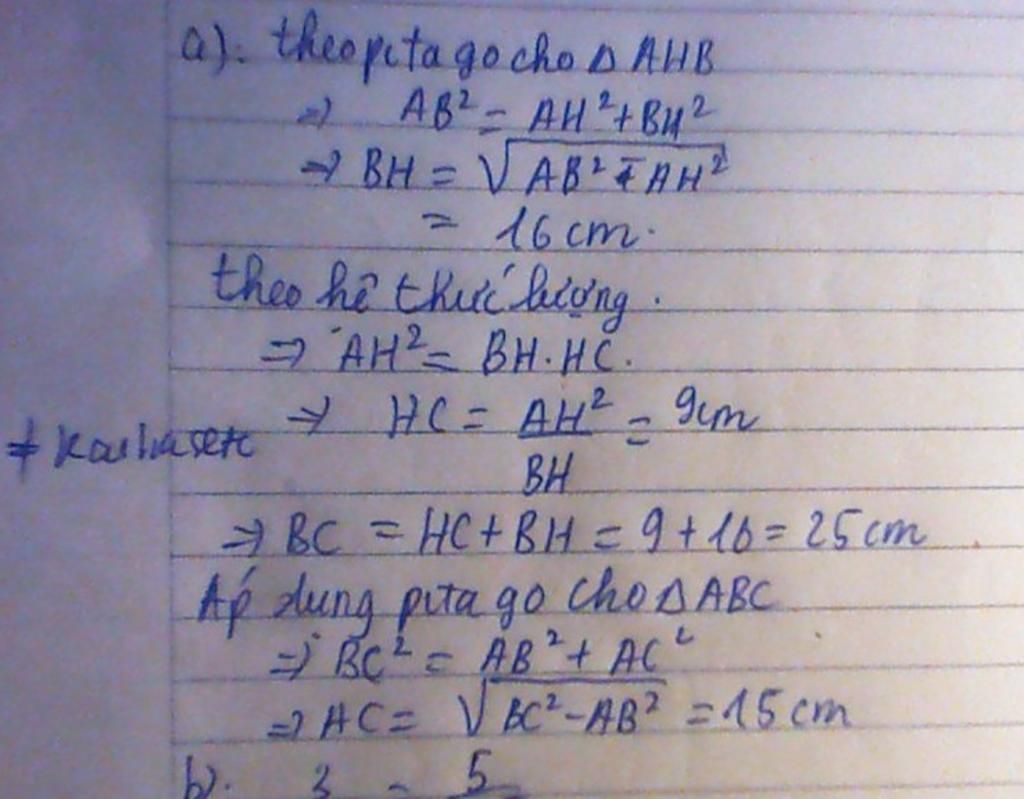 a). theo pitago cho Δ AHB
=> AB² = AH² + BH²
=> BH = √AB² - AH²
= 16 cm.
theo hê thức lượng.
=> AH² = BH.HC.
=> HC = AH²/BH = 9cm
=> BC = HC + BH = 9 + 16 = 25 cm
Áp dụng pitago cho Δ ABC
=> BC² = AB² + AC²
=> AC = √BC² - AB² = 15 cm
b). 3 5